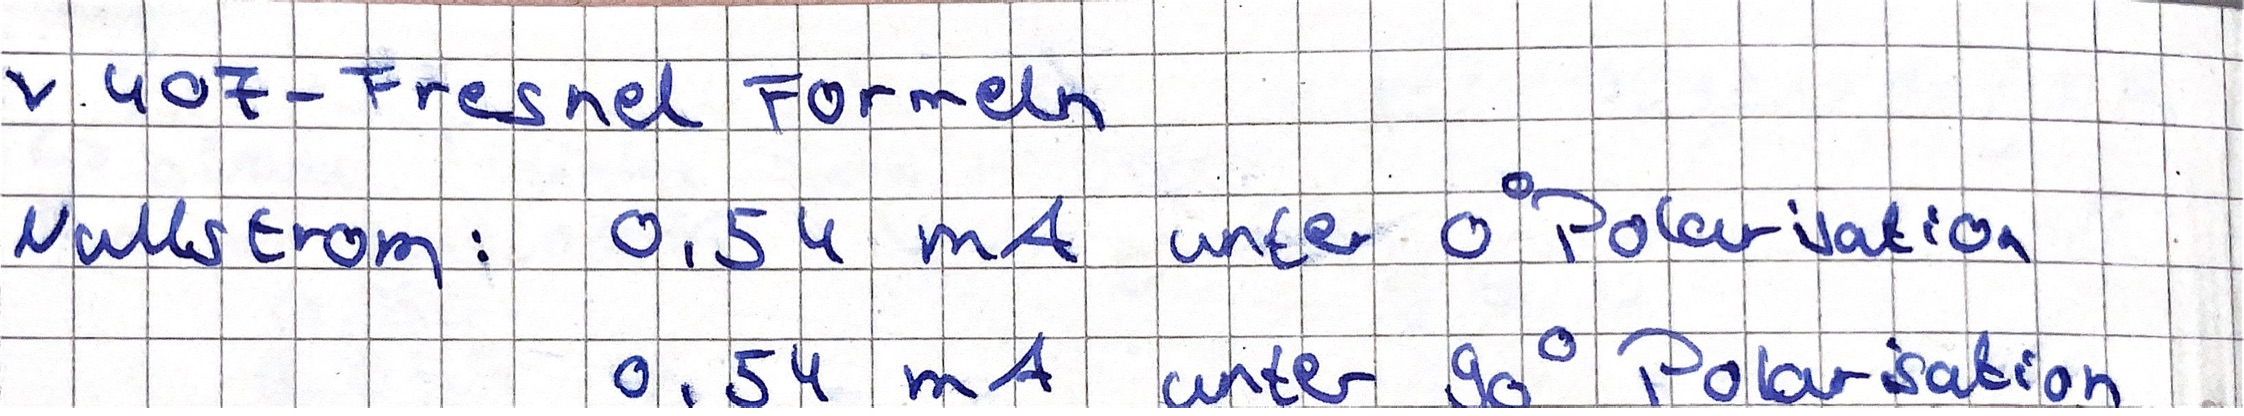 v 407 - Fresnel Formeln
Nullstrom: 0,54 mA unter 0° Polarisation
0,54 mA unter 90° Polarisation